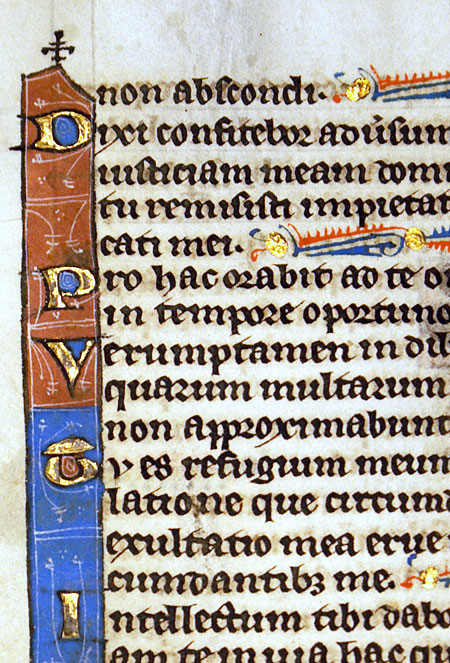 non abscondi.
Dixi confitebor aduersum
iusticiam meam domi
tu remisisti impietat
cati mei.
Pro hac orabit ad te o
in tempore oportuno
Verumptamen in dil
quarum multarum
non approximabunt
Tu es refugium meum
latione que circumd
exultatio mea erue
cumdantibꝫ me.
Intellectum tibi dabo
am te in uia hac qu